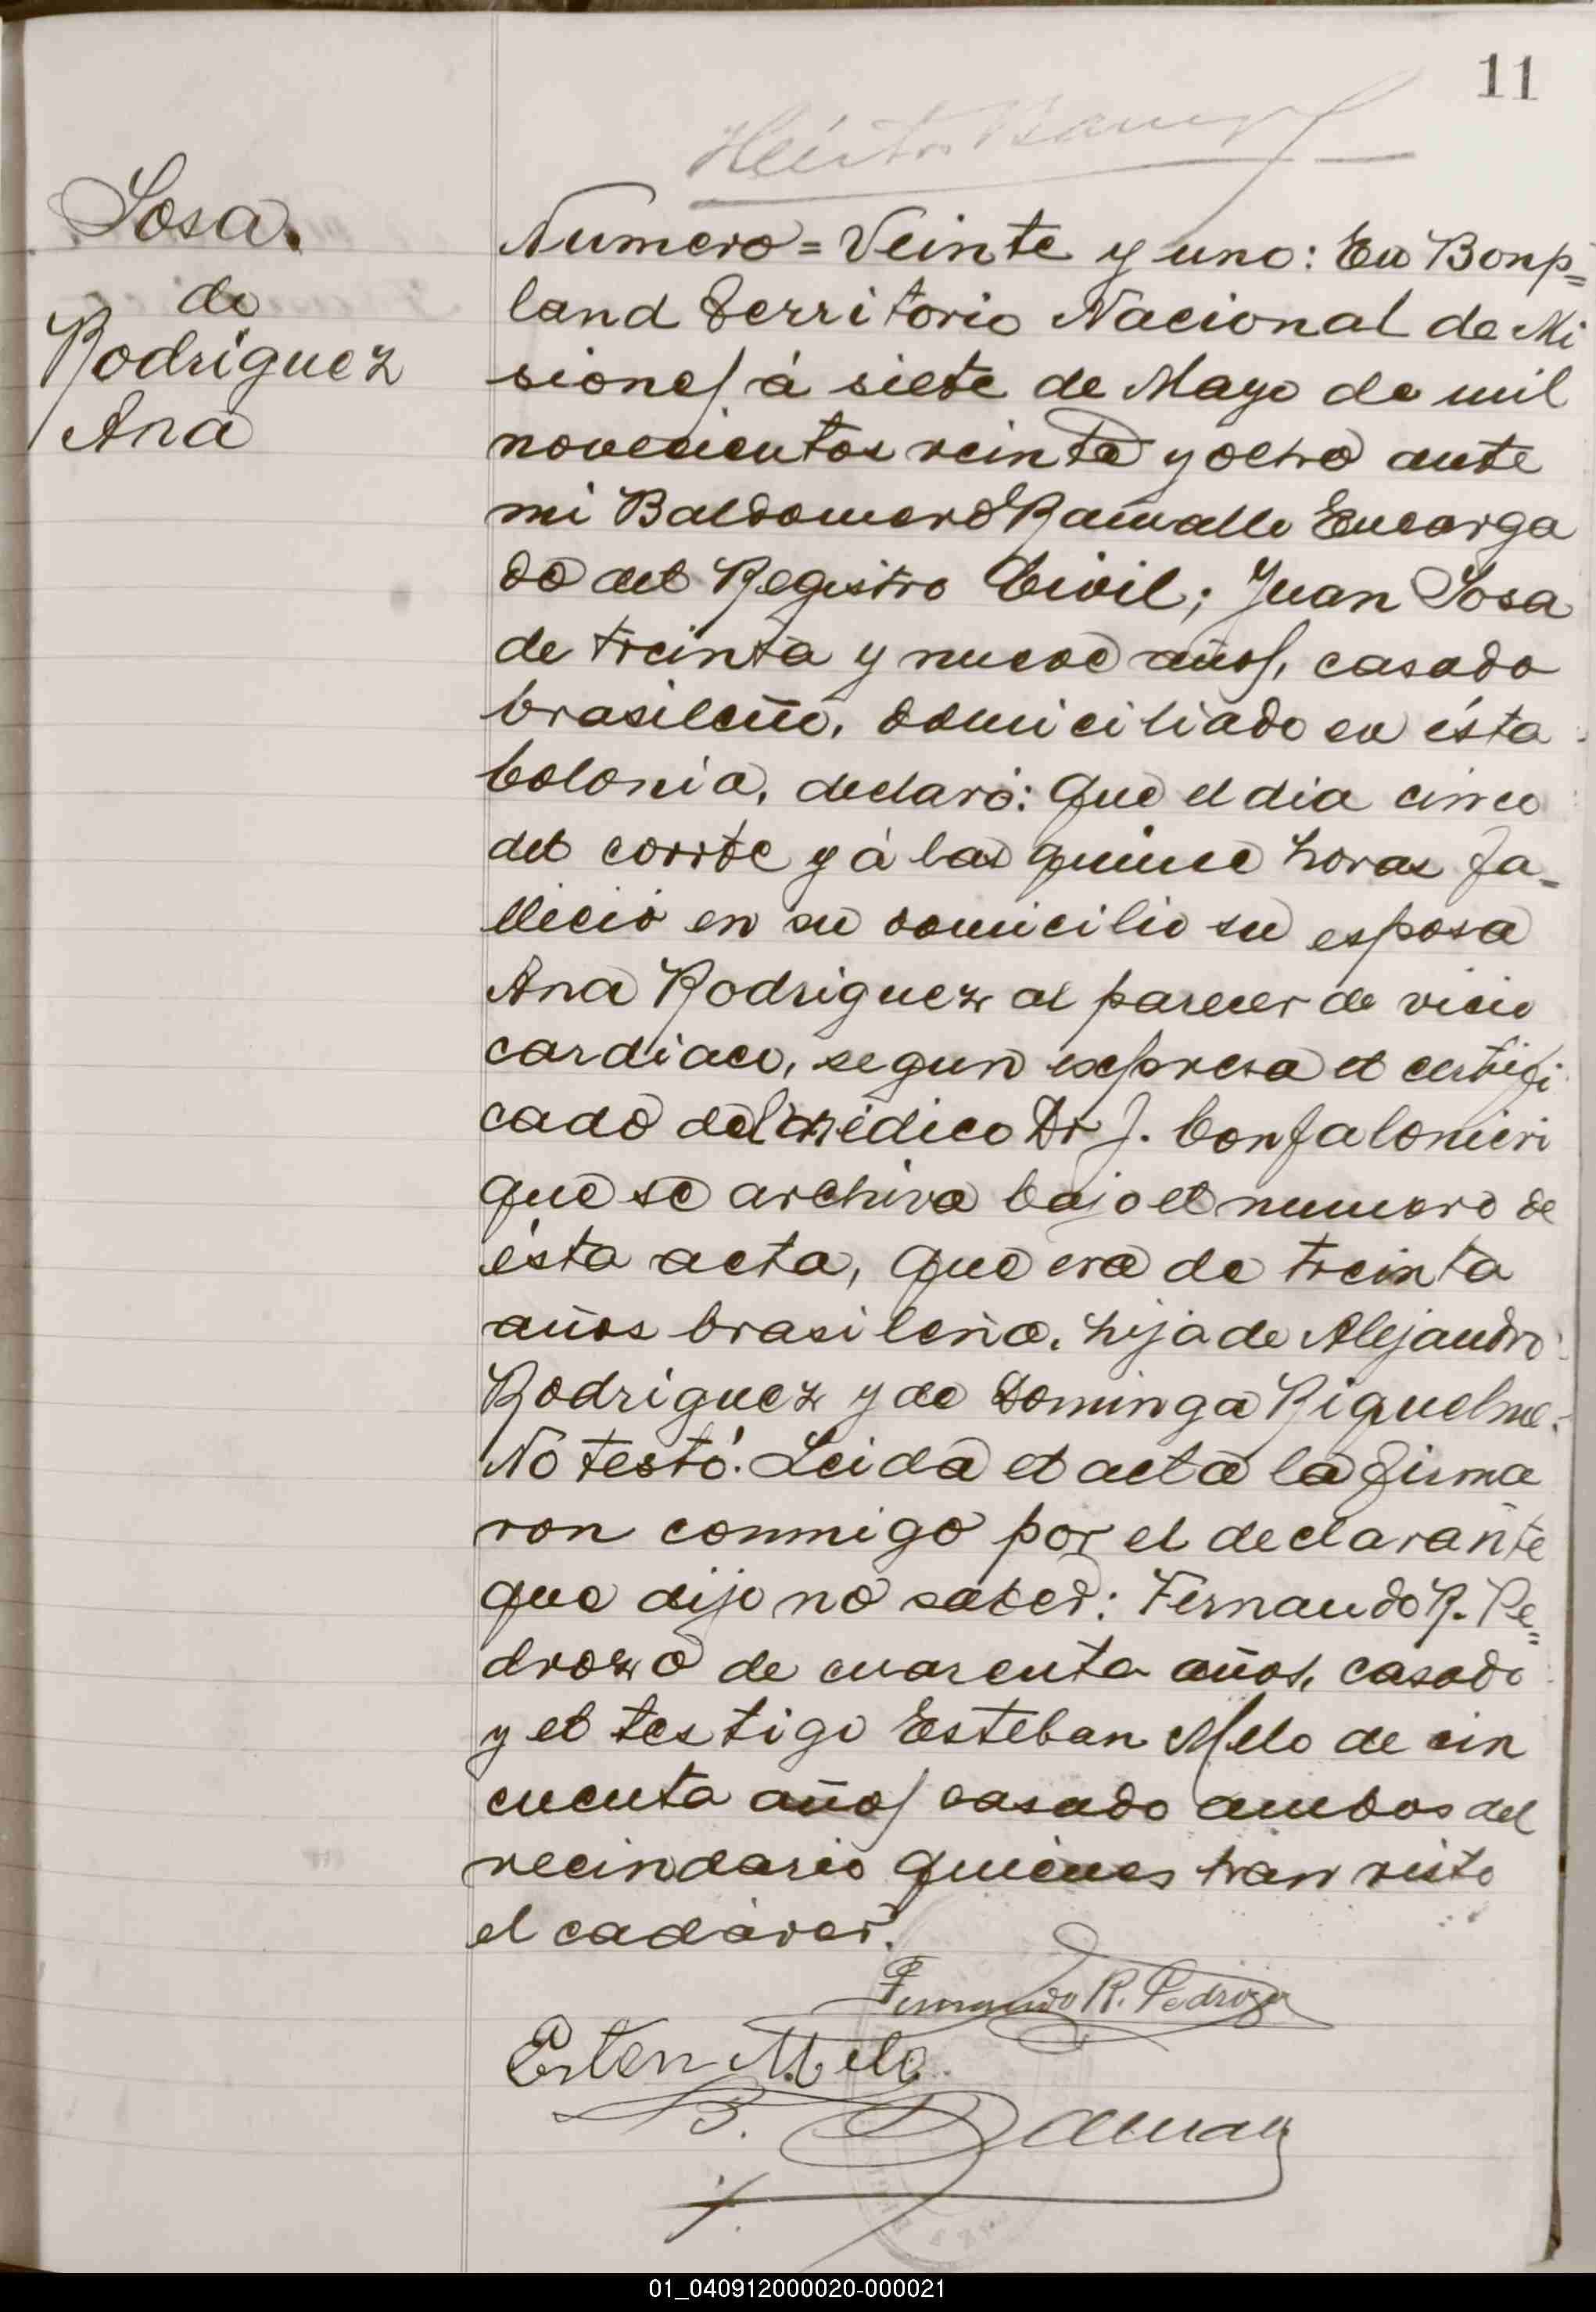 11
Sosa.
de
Rodriguez
Ana
Numero = Veinte y uno: En Bonp=
land Territorio Nacional de Mi
siones á siete de Mayo de mil
novecientos veinte y ocho ante
mi Baldomero Ramallo Encarga
do del Registro Civil; Juan Sosa
de treinta y nueve años, casado
brasileño, domiciliado en ésta
Colonia, declaró: Que el dia cinco
del corrte y á las quince horas fa-
llició en su domicilio su esposa
Ana Rodriguez al parecer de vicio
cardiaco, segun expresa el certifi
cado del médico Dr J. Confalonieri
que se archiva bajo el numero de
ésta acta, que era de treinta
años brasileña, hija de Alejandro
Rodriguez y de Dominga Riquelme.
No testó. Leida el acta la firma
ron conmigo por el declarante
que dijo no saber: Fernando R. Pe=
drozo de cuarenta años, casado
y el testigo Esteban Melo de cin
cuenta años casado ambos del
vecindario quienes han visto
el cadáver.
Fernando R. Pedrozo
Esten Melo
B. Ramallo
01_040912000020-000021